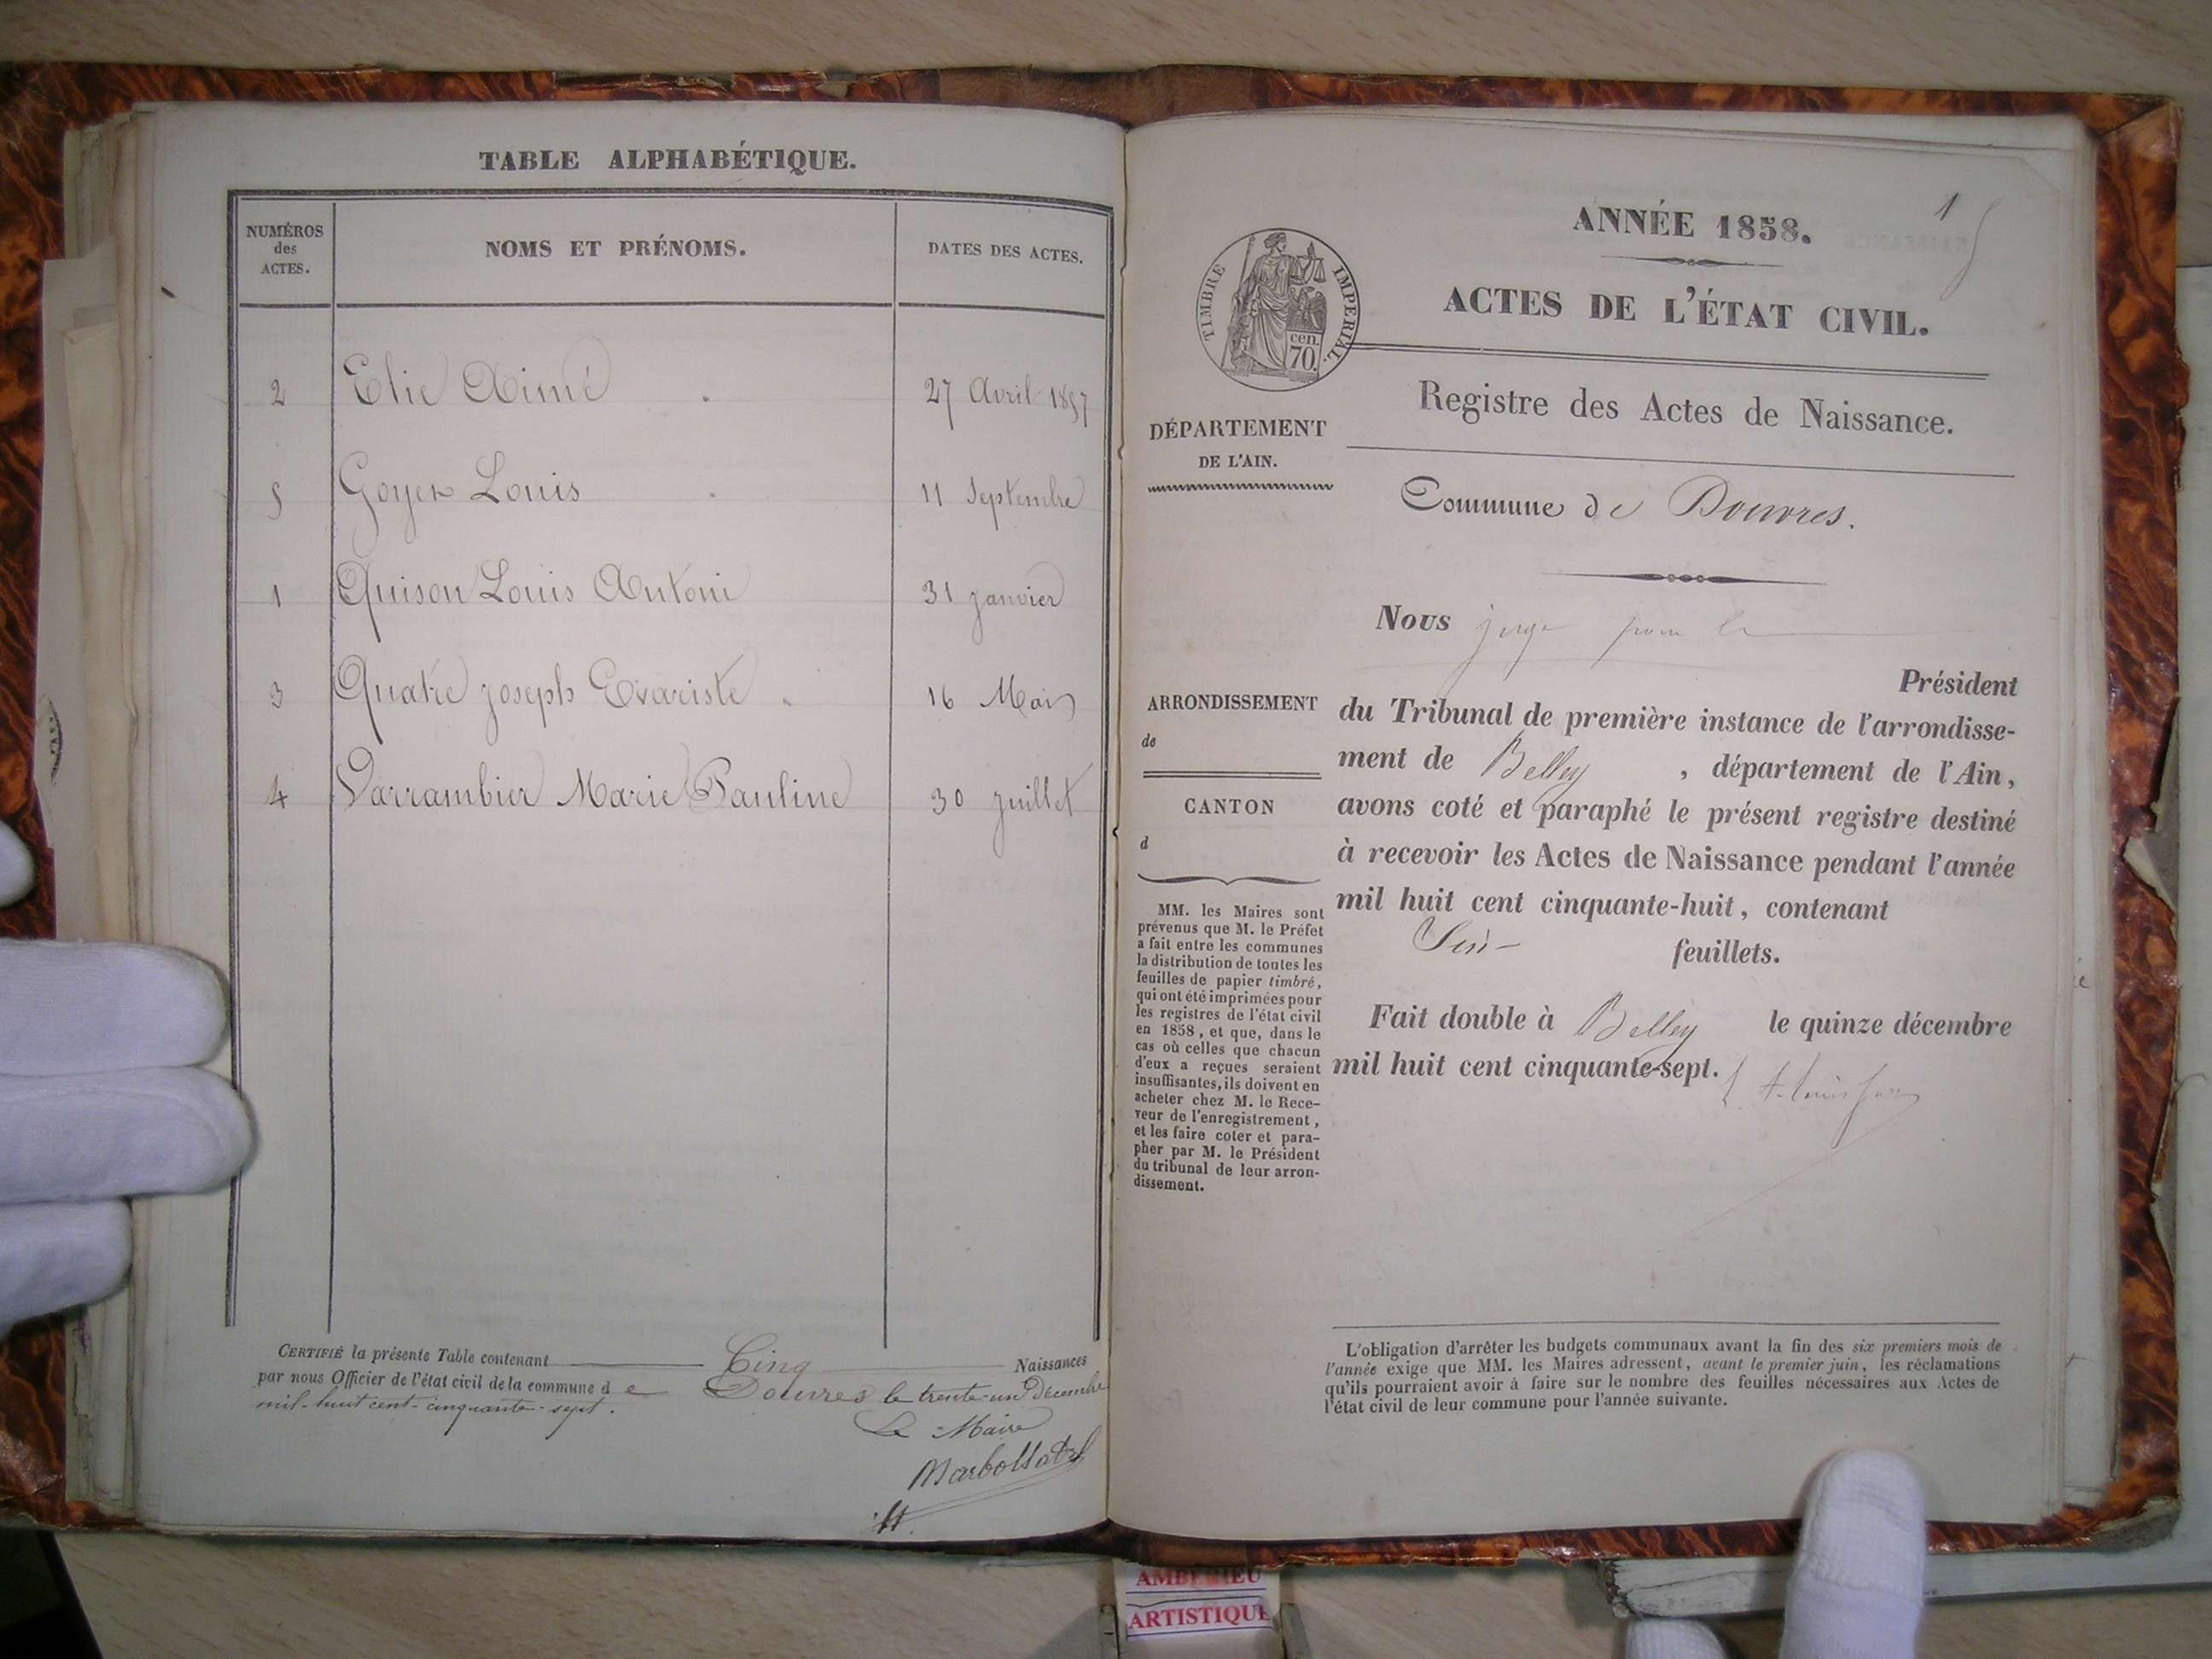 TABLE ALPHABÉTIQUE.
NUMÉROS
des
ACTES.
NOMS ET PRÉNOMS.
DATES DES ACTES.
2 Elie Aimé 27 Avril 1857
5 Goyer Louis 11 Septembre
1 Quison Louis Antoni 31 janvier
3 Quatre joseph Evariste 16 Mai
4 Varrambier Marie Pauline 30 juillet
CERTIFIÉ la présente Table contenant Cinq Naissances
par nous Officier de l'état civil de la commune de Douvres le trente-un Décembre
mil-huit cent-cinquante-sept.
Le Maire
1
ANNÉE 1858.
TIMBRE IMPÉRIAL.
cen.
70.
ACTES DE L'ÉTAT CIVIL.
Registre des Actes de Naissance.
DÉPARTEMENT
DE L'AIN.
Commune de Douvres.
Nous juge pour le
Président
ARRONDISSEMENT
de
CANTON
d
du Tribunal de première instance de l'arrondisse-
ment de Belley, département de l'Ain,
avons coté et paraphé le présent registre destiné
à recevoir les Actes de Naissance pendant l'année
mil huit cent cinquante-huit, contenant
feuillets.
Fait double à Belley le quinze décembre
mil huit cent cinquante-sept.
MM. les Maires sont
prévenus que M. le Préfet
a fait entre les communes
la distribution de toutes les
feuilles de papier timbré,
qui ont été imprimées pour
les registres de l'état civil
en 1858, et que, dans le
cas où celles que chacun
d'eux a reçues seraient
insuffisantes, ils doivent en
acheter chez M. le Rece-
veur de l'enregistrement,
et les faire coter et para-
pher par M. le Président
du tribunal de leur arron-
dissement.
L'obligation d'arrêter les budgets communaux avant la fin des six premiers mois de
l'année exige que MM. les Maires adressent, avant le premier juin, les réclamations
qu'ils pourraient avoir à faire sur le nombre des feuilles nécessaires aux Actes de
l'état civil de leur commune pour l'année suivante.
ARTISTIQUE